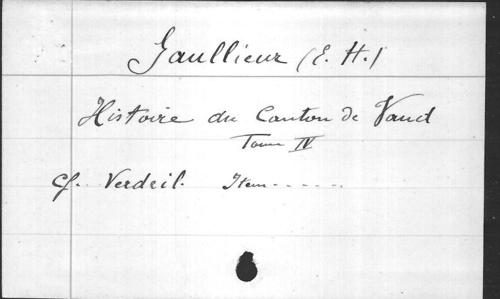 Gaullieur (E. H.)
Histoire du Canton de Vaud
Tome IV
Cf. Verdeil. Item - - - - - -